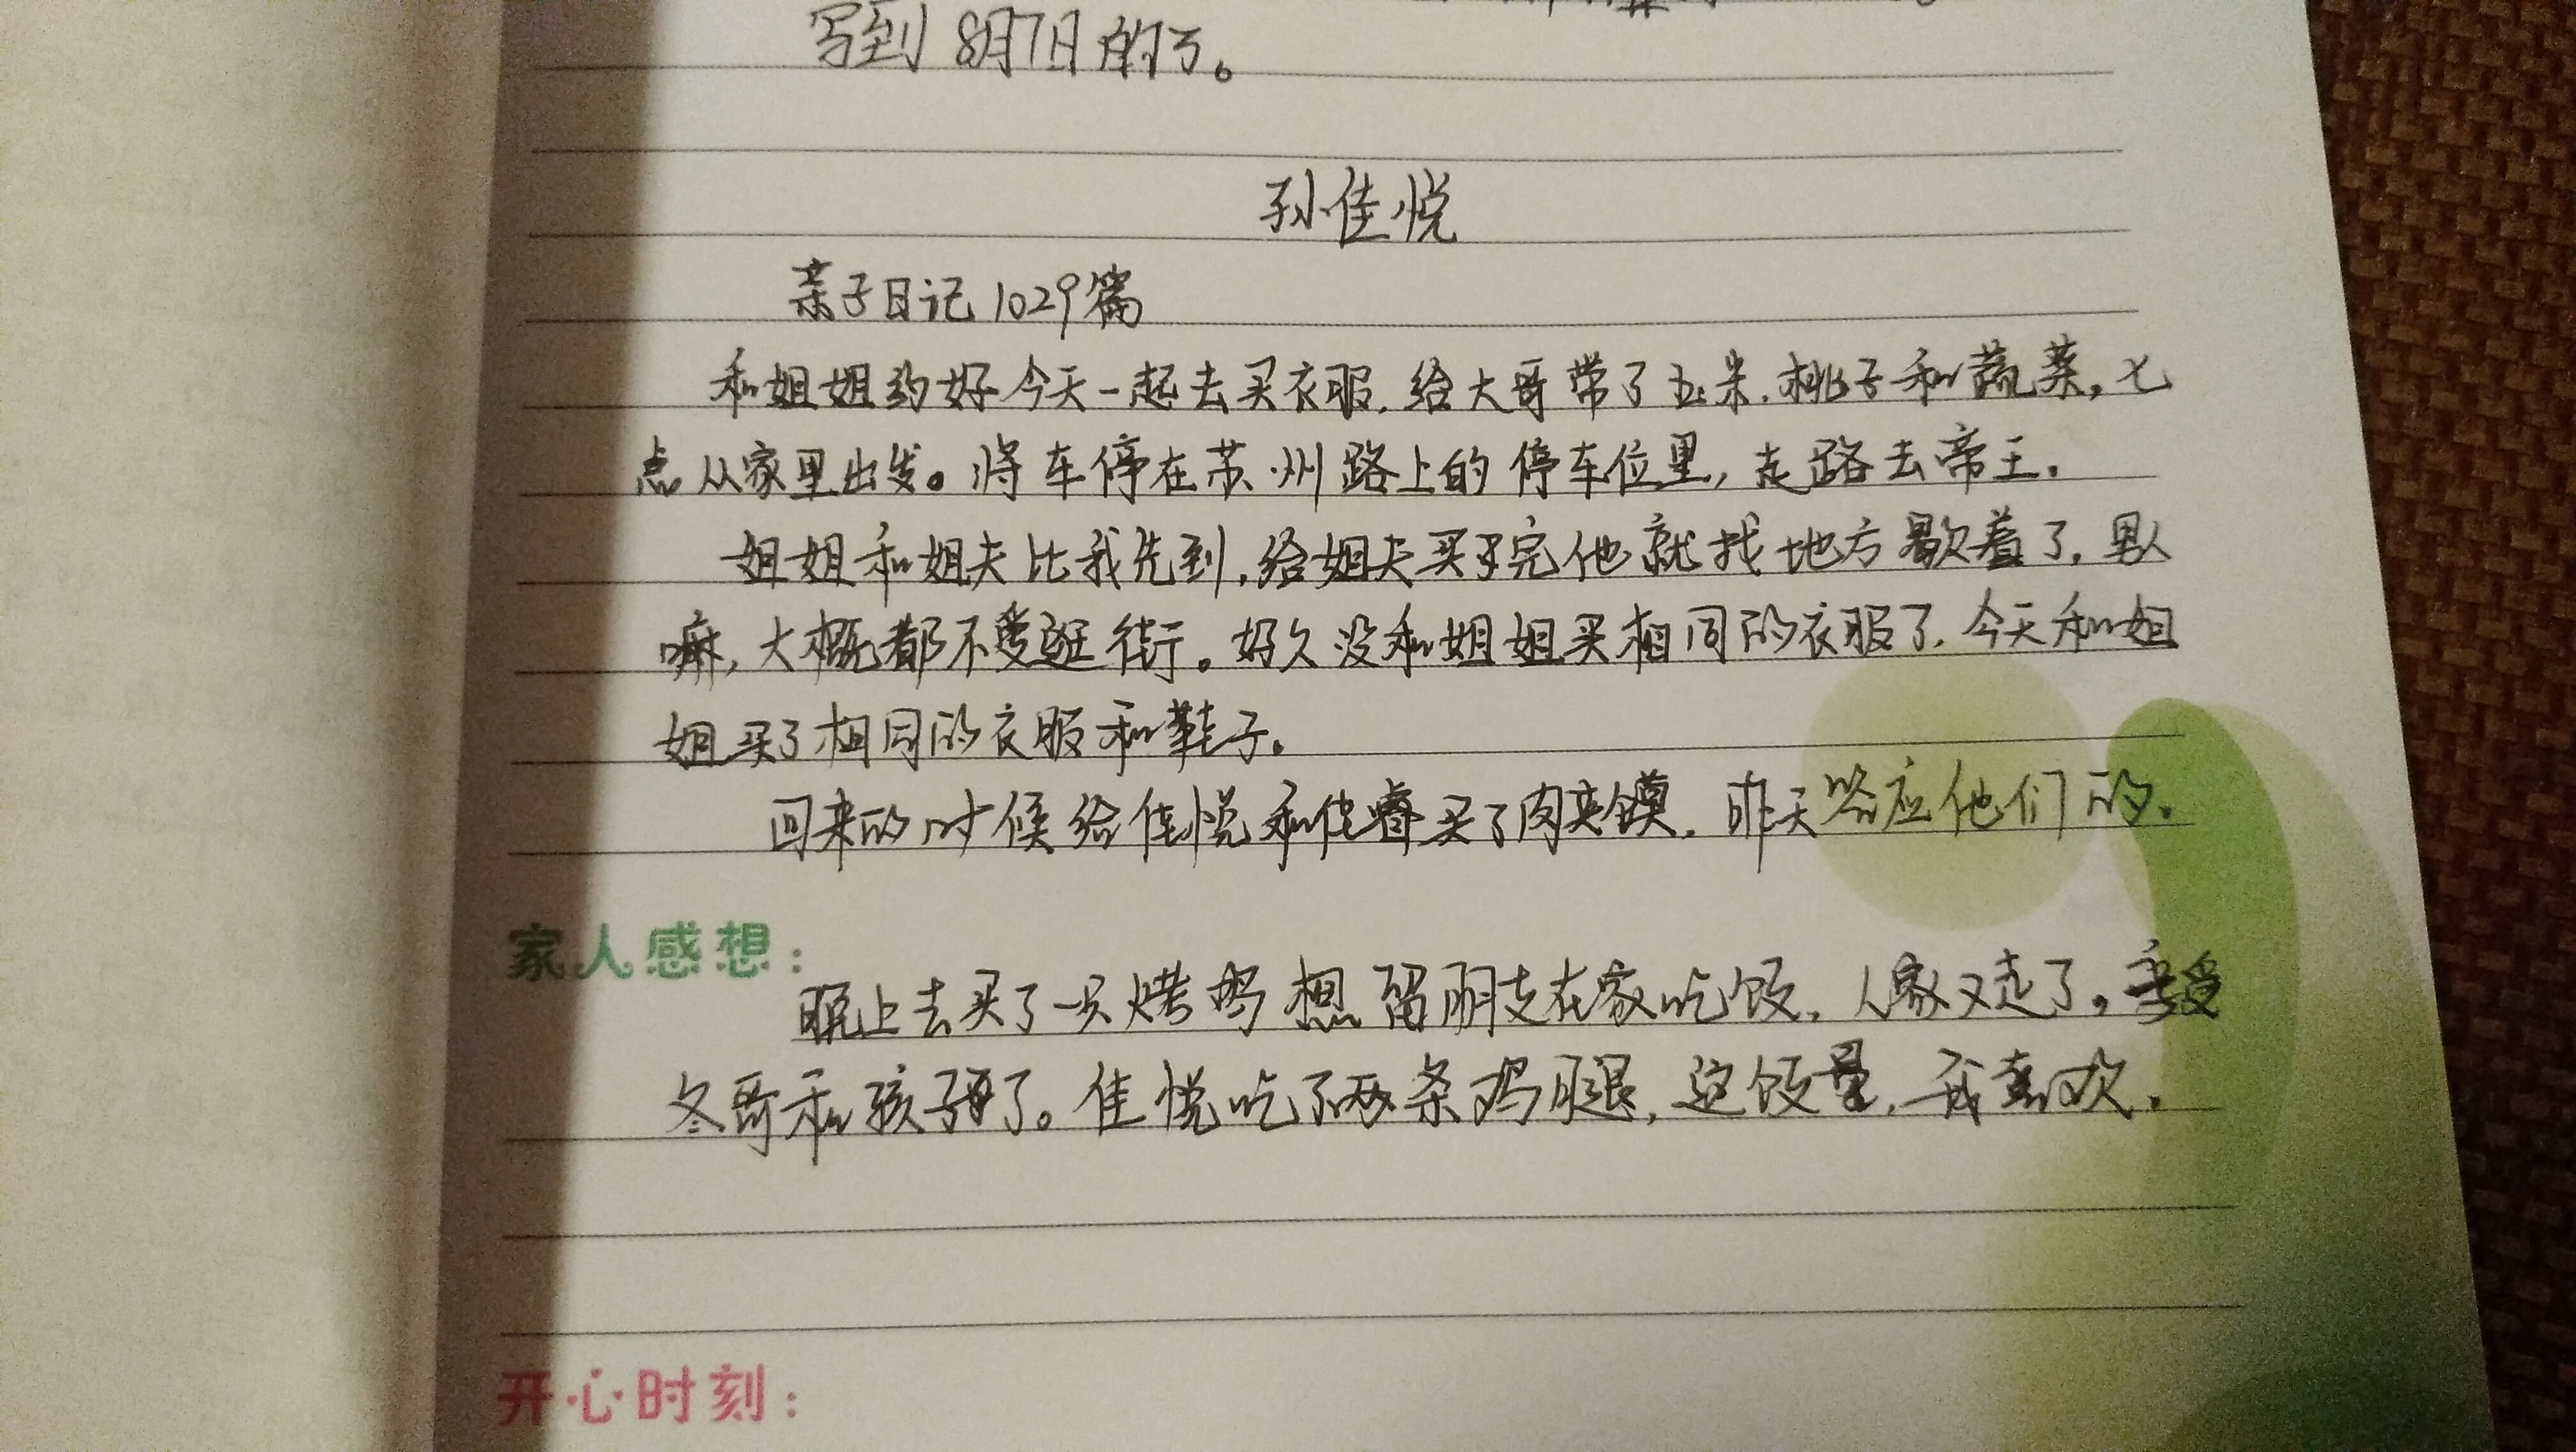 写到8月7日的了。
孙佳悦
亲子日记1029篇
和姐姐约好今天一起去买衣服.给大哥带了玉米.桃子和蔬菜,七
点从家里出发。将车停在苏州路上的停车位里,走路去帝王.
姐姐和姐夫比我先到,给姐夫买完他就找地方歇着了,男人
嘛,大概都不爱逛街。好久没和姐姐买相同的衣服了,今天和姐
姐买了相同的衣服和鞋子。
回来的时候给佳悦和佳睿买了肉夹馍,昨天答应他们的.
家人感想:
晚上去买了一只烤鸡想留朋友在家吃饭,人家又走了。
冬哥和孩子了。佳悦吃了两条鸡腿,这饭量,我喜欢.
开心时刻: